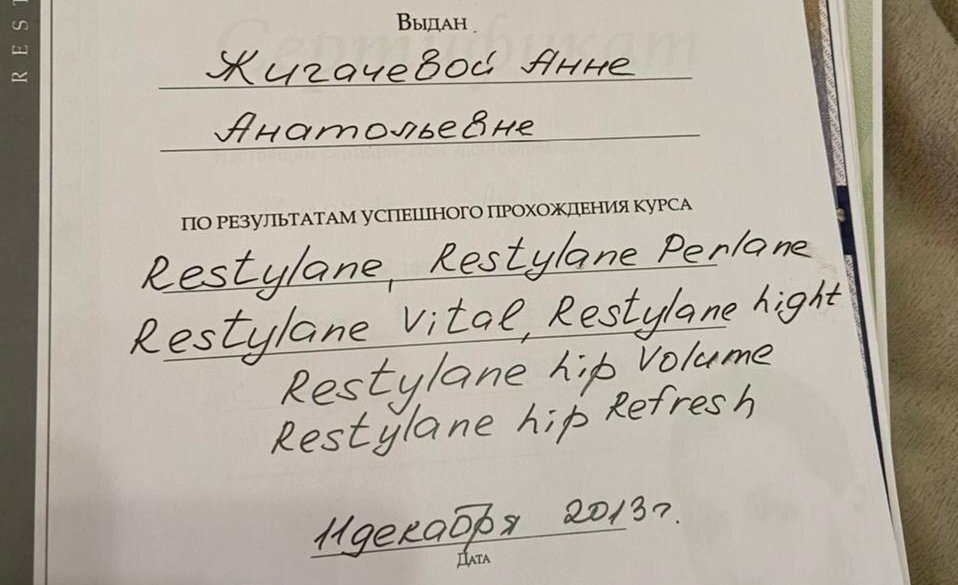 REST
Выдан
Жигачевой Анне
Анатольевне
ПО РЕЗУЛЬТАТАМ УСПЕШНОГО ПРОХОЖДЕНИЯ КУРСА
Restylane, Restylane Perlane
Restylane Vital, Restylane hight
Restylane hip Volume
Restylane hip Refresh
11 декабря 2013 г.
Дата